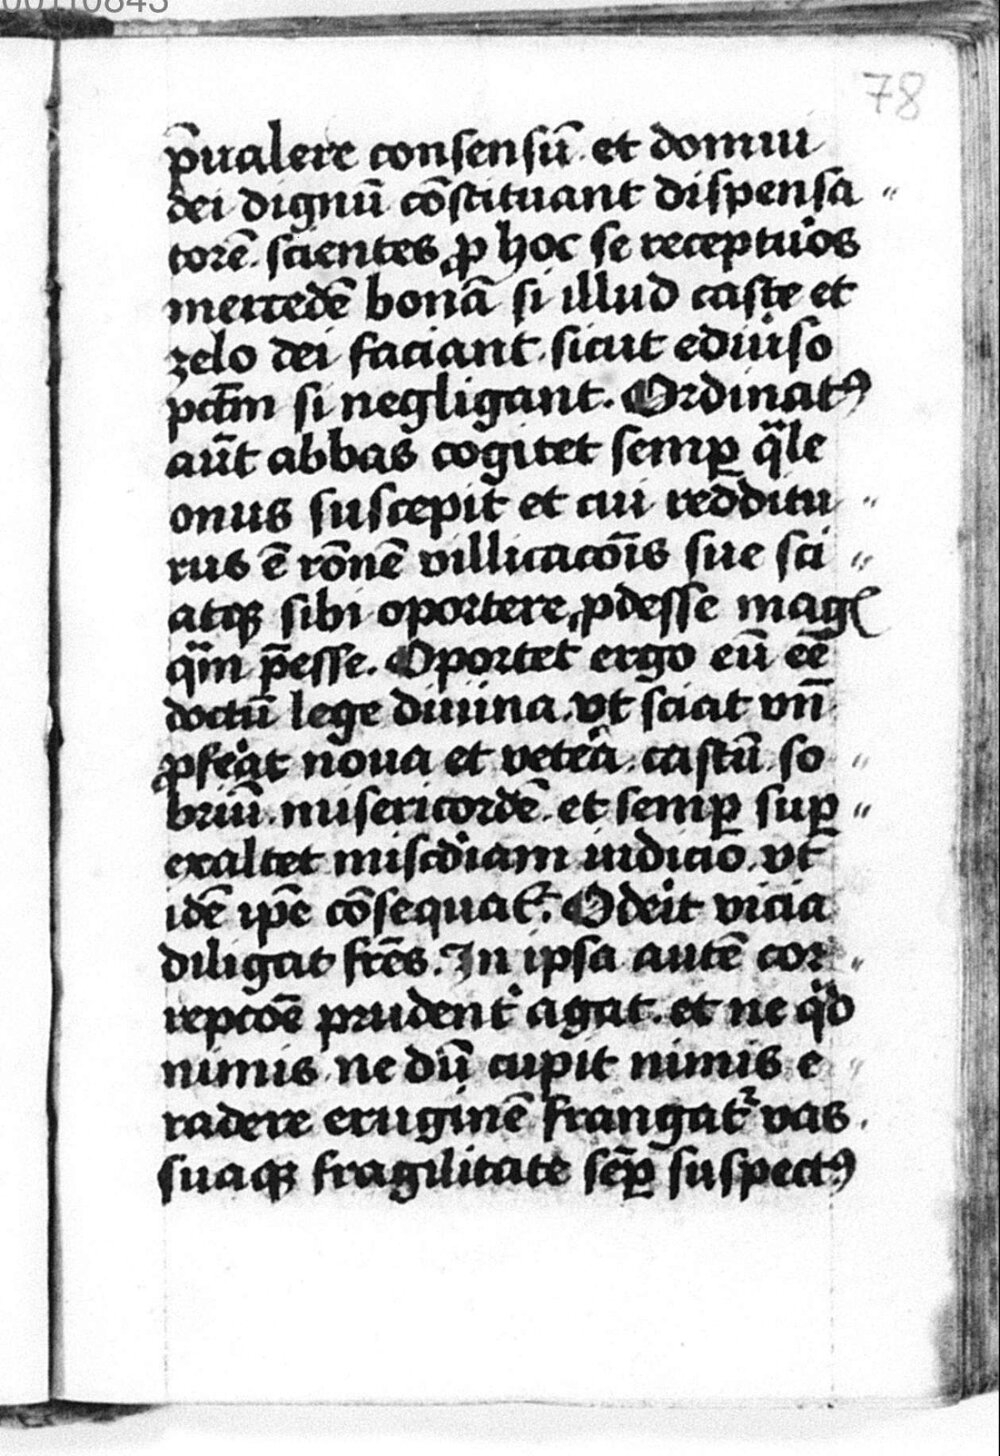 00110843
78
p̄ualere consensū et domui
dei dignū cōstituant dispensa〃
torē. scientes ꝓ hoc se receptuͥos
mercedē bonā si illud caste et
zelo dei faciant. sicut ediuͥso
pct̄m si negligant. Ordinatꝰ
aūt abbas cogitet semꝑ qͣle
onus suscepit et cui redditu〃
rus ē rōnē villicacōis sue sci〃
atqꝫ sibi oportere ꝓdesse magꝭ
qͣm p̄esse. Oportet ergo eū eē
doctū lege diuina. vt sciat vn̄
ꝓfeͣt noua et veteͣa. castū. so〃
briū. misericordē. et semꝑ suꝑ〃
exaltet miscd̓iam iudicio. vt
idē ip̄e cōsequat᷑. Odeͥit vicia
diligat frēs. In ipsa autē cor〃
repcōē prudent̓ agat. et ne qͥd
nimis. ne dū cupit nimis e〃
radere eruginē frangat᷑ vas.
suaqꝫ fragilitate sēꝑ suspectꝰ